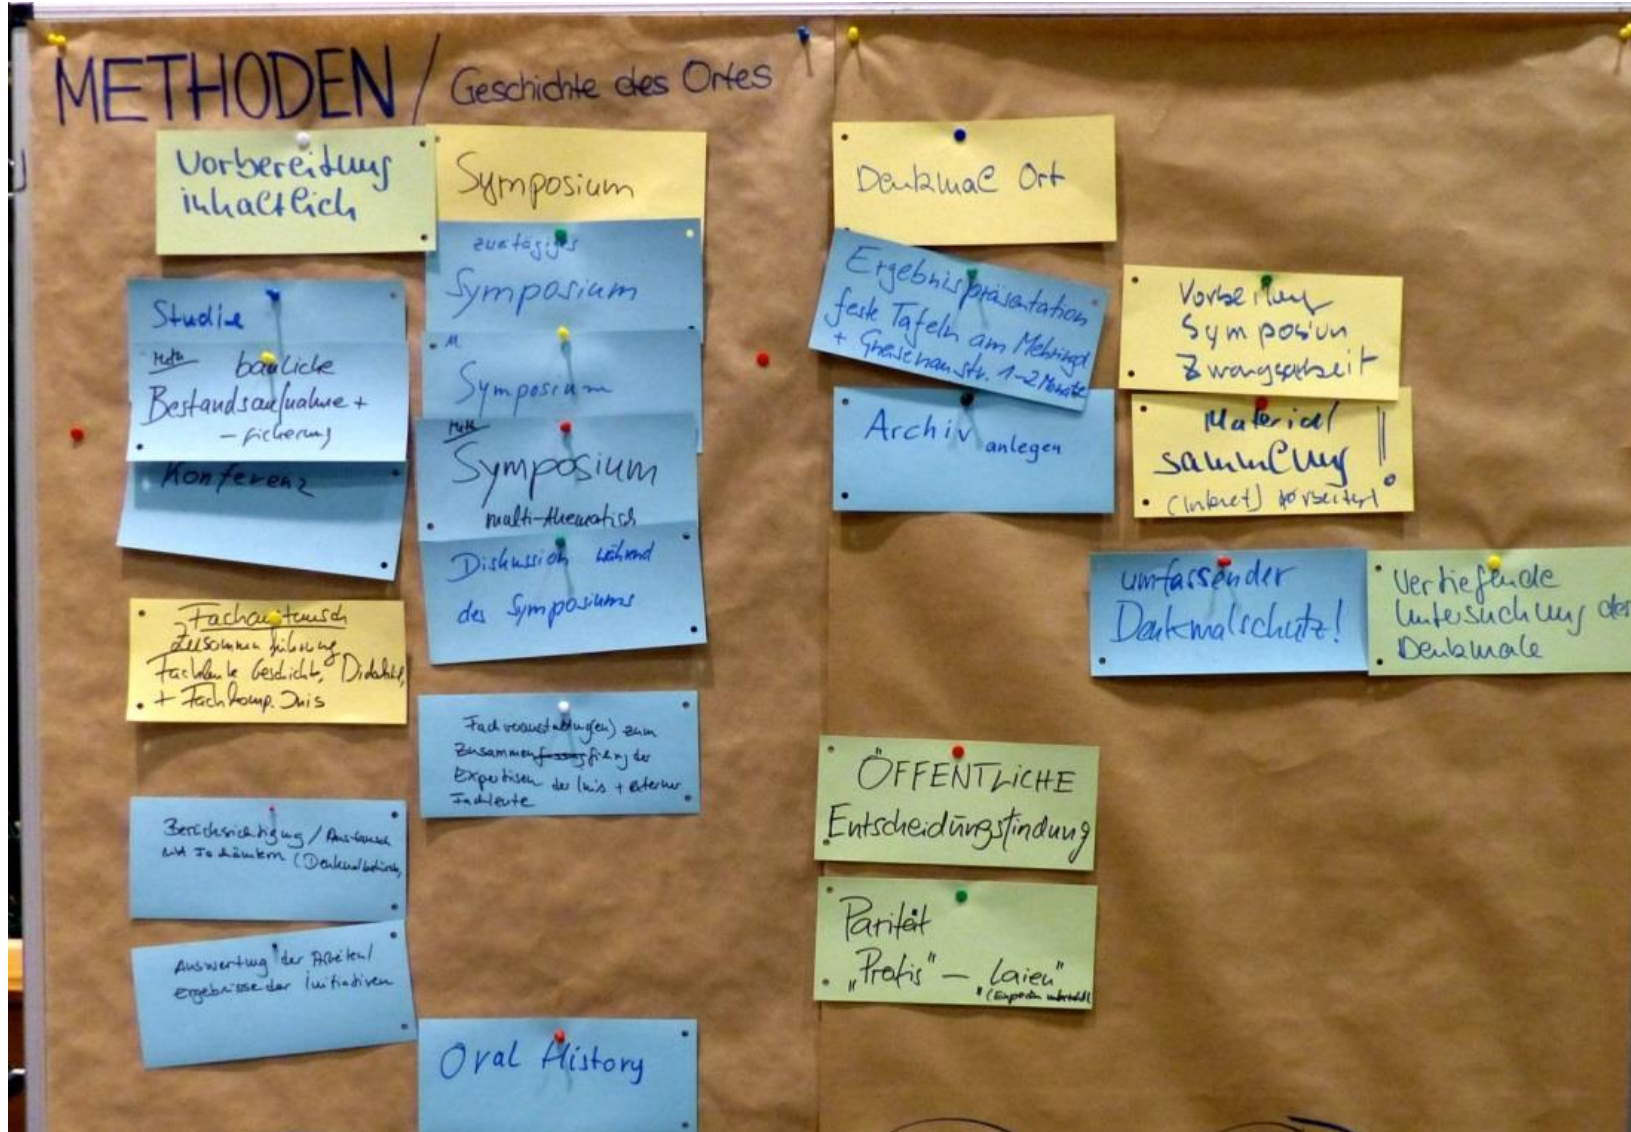 METHODEN / Geschichte des Ortes
Vorbereitung
inhaltlich
Studie
Meth bauliche
Bestandsaufnahme +
- sicherung
Konferenz
Fachaustausch
Zusammenführung
Fachleute Geschichte, Didaktik,
+ Fachkomp. Inis
Berücksichtigung / Austausch
mit Fachämtern (Denkmalbehörde,
Auswertung der Arbeiten/
ergebnisse der Initiativen
Symposium
zweitägiges
Symposium
M
Symposium
Meth
Symposium
multi-thematisch
Diskussion während
des Symposiums
Fachveranstaltung(en) zum
Zusammenführung der
Expertisen der Inis + externer
Fachleute
Oral History
Denkmal Ort
Ergebnispräsentation
feste Tafeln am Mehringd
+ Gneisenaustr. 1-2 Monate
Archiv anlegen
Vorbereitung
Symposium
Zwangsarbeit
Material
sammlung !
(Internet)
umfassender
Denkmalschutz!
Vertiefende
Untersuchung des
Denkmale
ÖFFENTLICHE
Entscheidungsfindung
Parität
„Profis" – „Laien"